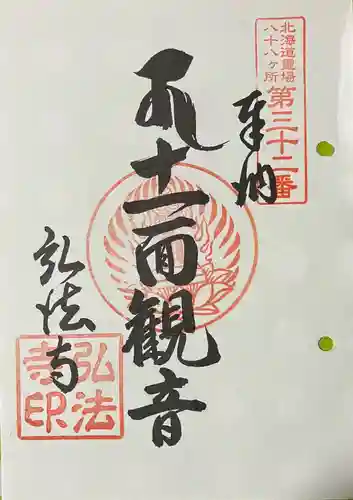 北海道霊場
八十八ヶ所
第三十二番
奉納
十一面観音
弘法寺
弘法
寺印